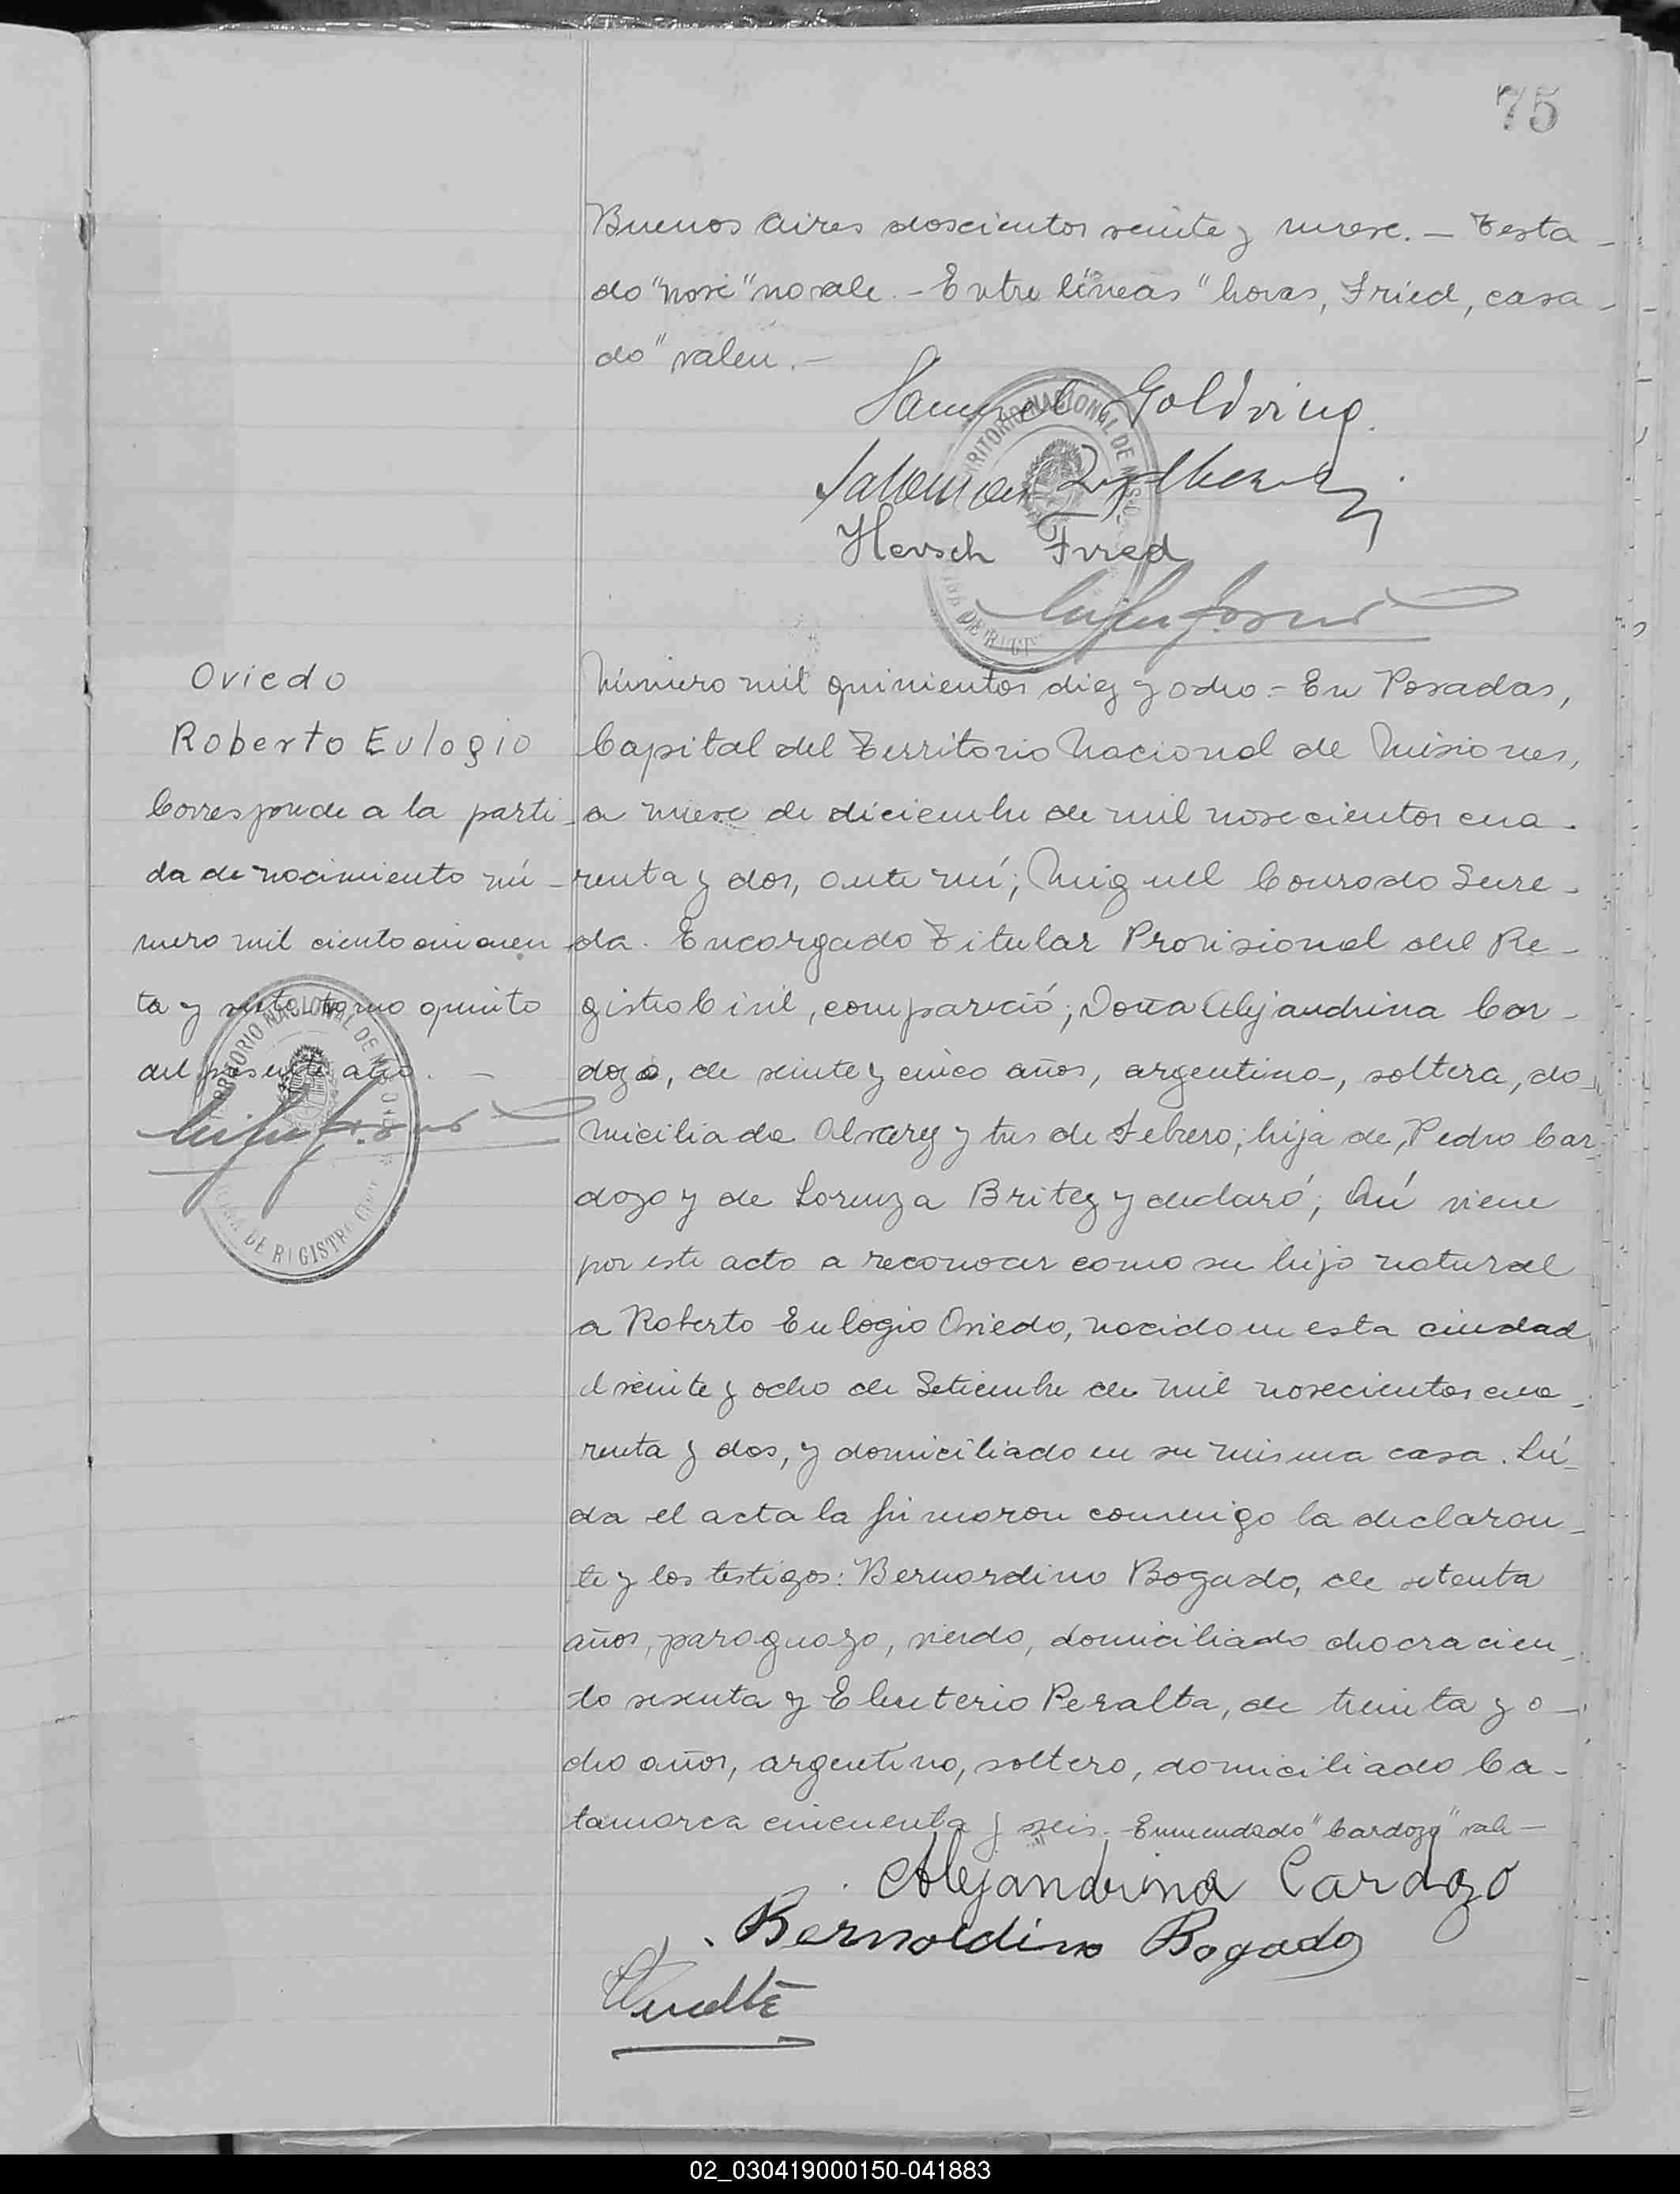 75
Buenos Aires doscientos veinte y nueve. — Testa-
do "novi" no vale. - Entre líneas "horas, Fried, casa-
do" valen. -
Samuel Goldring.
Hersch Fried
Oviedo
Roberto Eulogio
Corresponde a la parti-
da de nacimiento nú-
mero mil ciento cincuen
ta y siete tomo quinto
del presente año. -
TERRITORIO NACIONAL DE MISIONES
DE REGISTRO CIVIL
Número mil quinientos diez y ocho = En Posadas,
Capital del Territorio Nacional de Misiones,
a nueve de diciembre de mil novecientos cua-
renta y dos, ante mí; Miguel Conrado Sure-
da. Encargado Titular Provisional del Re-
gistro Civil, compareció; Doña Alejandrina Car-
dozo, de veinte y cinco años, argentina, soltera, do-
miciliada Alvarez y tres de Febrero; hija de, Pedro Car-
dozo y de Lorenza Britez y declaró; Qué viene
por este acto a reconocer como su hijo natural
a Roberto Eulogio Oviedo, nacido en esta ciudad
el veinte y ocho de Setiembre de mil novecientos cua-
renta y dos, y domiciliado en su misma casa. Leí-
da el acta la firmaron conmigo la declaran-
te y los testigos: Bernardino Bogado, de setenta
años, paraguayo, viudo, domiciliado chacra cien-
to sesenta y Eleuterio Peralta, de treinta y o-
cho años, argentino, soltero, domiciliado Ca-
tamarca cincuenta y seis. - Enmendado "Cardozo" vale -
Alejandrina Cardozo
Bernoldino Bogado
02_030419000150-041883